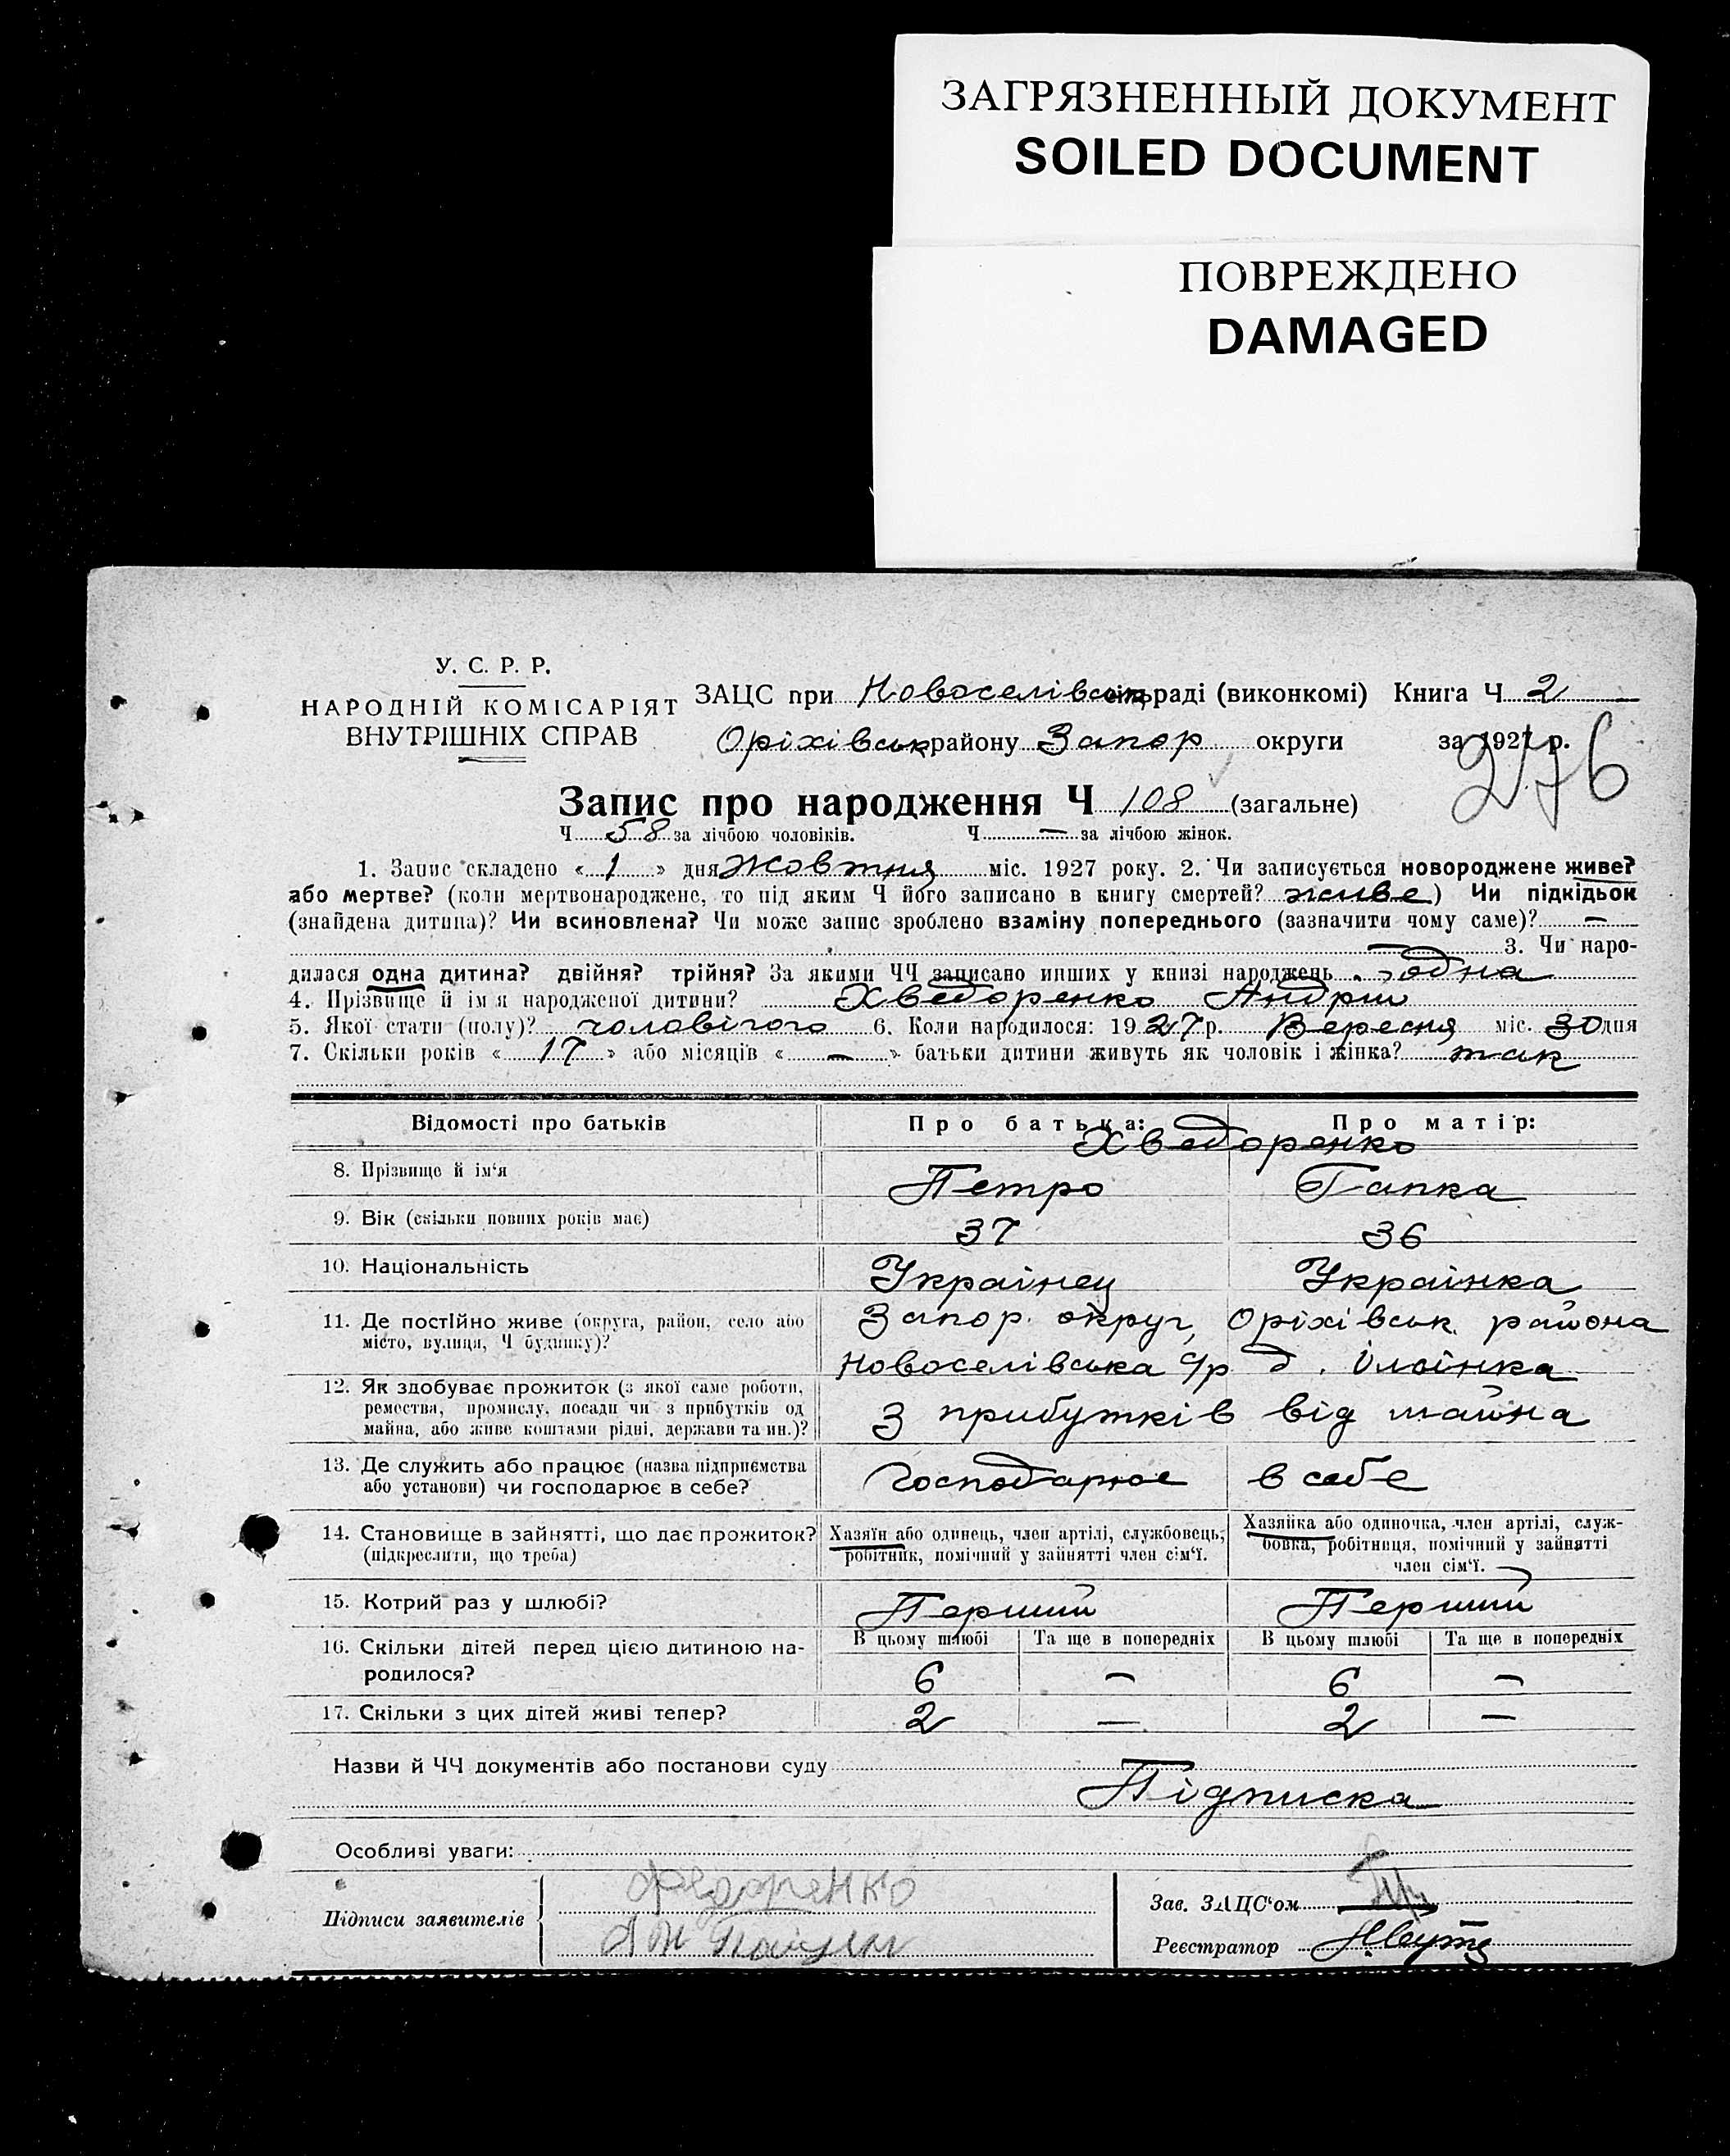 ЗАГРЯЗНЕННЫЙ ДОКУМЕНТ
SOILED DOCUMENT
ПОВРЕЖДЕНО
DAMAGED
У. С. Р. Р.
НАРОДНІЙ КОМІСАРІЯТ
ВНУТРІШНІХ СПРАВ
ЗАЦС при Новоселівськ сільраді (виконкомі) Книга Ч 2
Оріхівськ району Запор округи за 1927 р.
276
Запис про народження Ч 108 (загальне)
Ч 58 за лічбою чоловіків. Ч — за лічбою жінок.
1. Запис складено « 1 » дня Жовтня міс. 1927 року. 2. Чи записується новороджене живе?
або мертве? (коли мертвонароджене, то під яким Ч його записано в книгу смертей? живе) Чи підкідьок
(знайдена дитина)? Чи всиновлена? Чи може запис зроблено взаміну попереднього (зазначити чому саме)? —
— 3. Чи наро-
дилася одна дитина? двійня? трійня? За якими ЧЧ записано инших у книзі народжень . - одна
4. Прізвище й ім'я народженої дитини? Хведоренко Андрій
5. Якої стати (полу)? чоловічого 6. Коли народилося: 1927 р. Вересня міс. 30 дня
7. Скільки років « 17 » або місяців « — » батьки дитини живуть як чоловік і жінка? так
Відомості про батьків Про батька: Про матір:
Хведоренко
8. Прізвище й ім'я Петро Гапка
9. Вік (скільки повних років має) 37 36
10. Національність Українец Українка
11. Де постійно живе (округа, район, село або
місто, вулиця, Ч будинку)?
Запор. округ, Оріхівськ. района
Новоселівська с/р д.
12. Як здобуває прожиток (з якої саме роботи,
ремества, промислу, посади чи з прибутків од
майна, або живе коштами рідні, держави та ин.)?
З прибутків від майна
13. Де служить або працює (назва підприємства
або установи) чи господарює в себе?
Господарює в себе
14. Становище в зайнятті, що дає прожиток?
(підкреслити, що треба)
Хазяїн або одинець, член артілі, службовець,
робітник, помічний у зайнятті член сім'ї.
Хазяйка або одиночка, член артілі, служ-
бовка, робітниця, помічний у зайнятті
член сім'ї.
15. Котрий раз у шлюбі? Перший Перший
16. Скільки дітей перед цією дитиною на-
родилося?
В цьому шлюбі Та ще в попередніх В цьому шлюбі Та ще в попередніх
6 — 6 —
17. Скільки з цих дітей живі тепер? 2 — 2 —
Назви й ЧЧ документів або постанови суду
Підписка
Особливі уваги:
Підписи заявителів
Федоренко
Зав. ЗАЦС'ом
Реєстратор